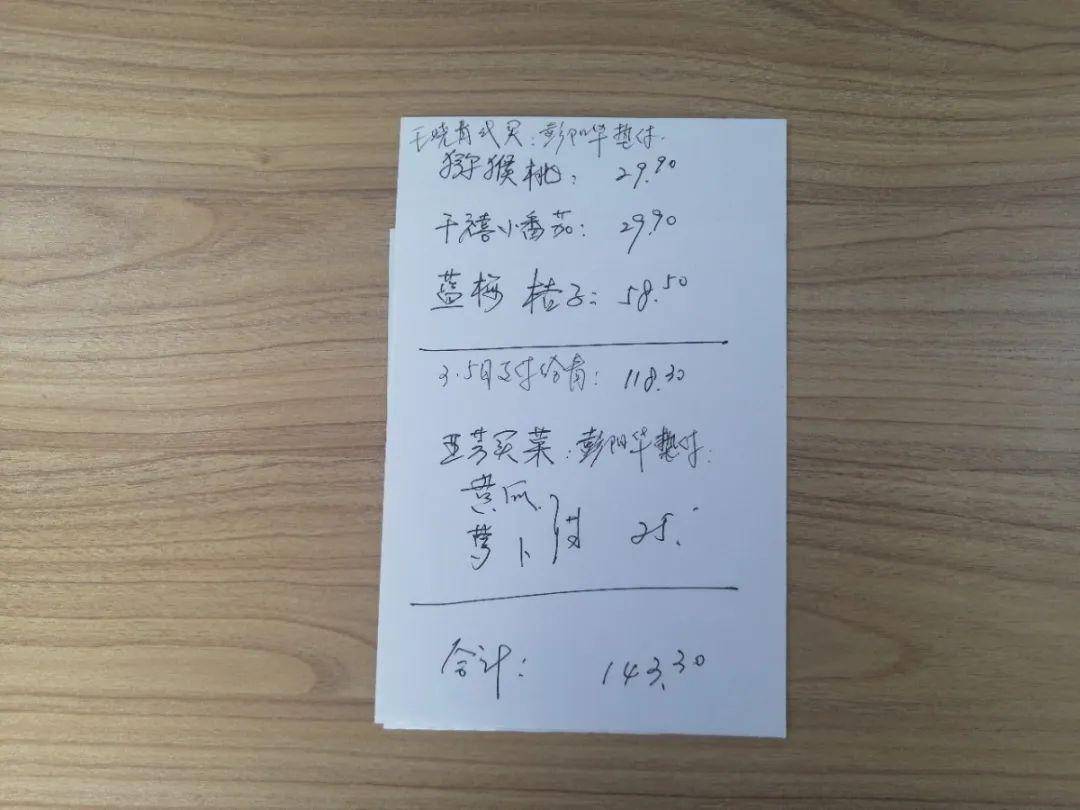 王晓青代买:彭阳华垫付.
猕猴桃: 29.90
千禧小番茄: 29.90
蓝梅 桔子: 58.50
3.5日支付给青: 118.30
亚芳买菜:彭阳华垫付.
黄瓜
萝卜 25.
合计: 143.30